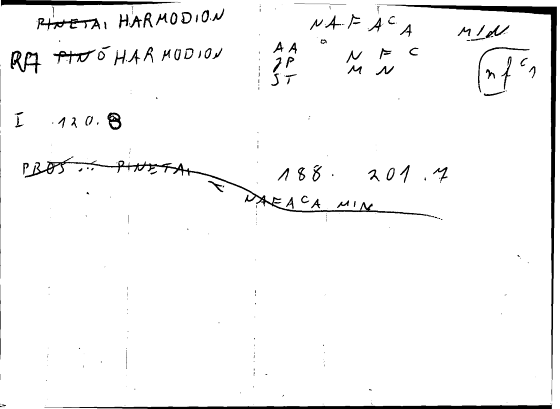 PINETAI HARMODION NAFACA MIN
RA PINO HARMODION AA N F C nfc1
JP M N
ST
I 120.8
PROS ... PINETAI 188. 201.7
NAFACA MIN